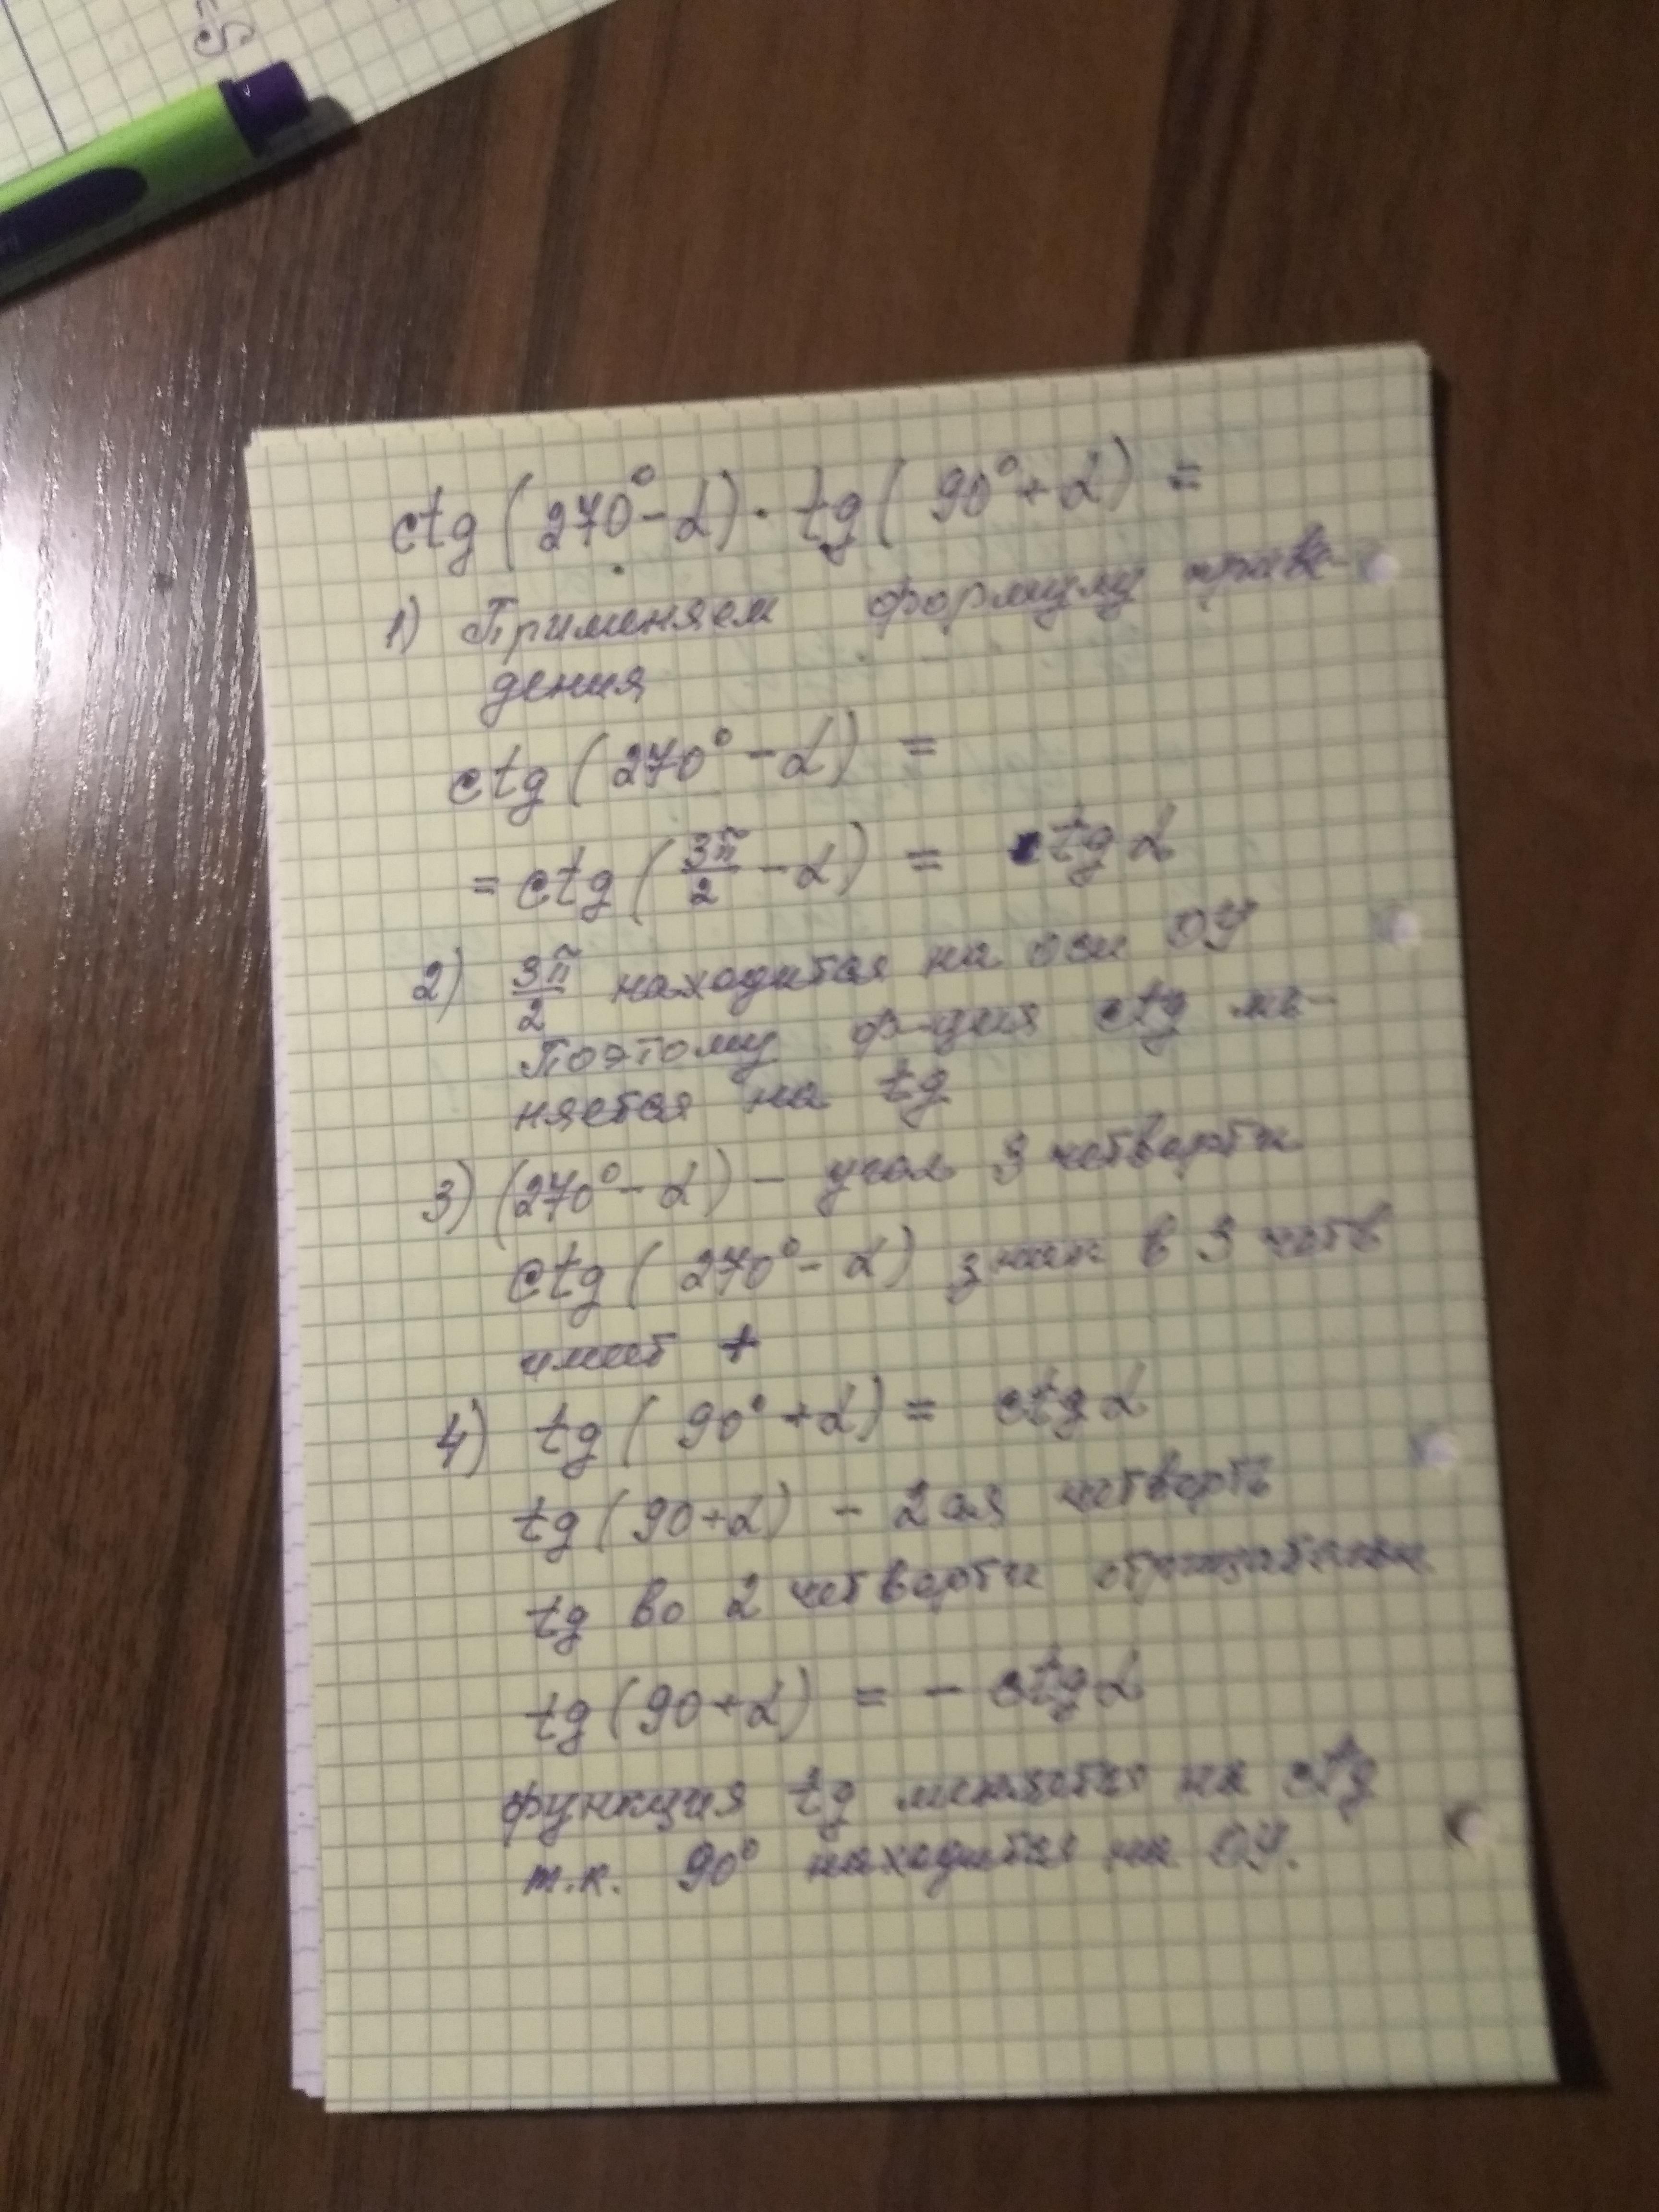 ctg(270°-α)·tg(90°+α)=
1) Применяем формулу приве-
дения
ctg(270°-α)=
=ctg(3π/2-α)= tgα
2) 3π/2 находится на оси ОУ
Поэтому ф-ция ctg ме-
няется на tg
3) (270°-α) - угол 3 четверти
ctg(270°-α) знак в 3 четв
имеет +
4) tg(90°+α)= ctgα
tg(90+α) - 2ая четверть
tg во 2 четверти
tg(90+α) = - ctgα
функция tg меняется на ctg
т.к. 90° находится на ОУ.